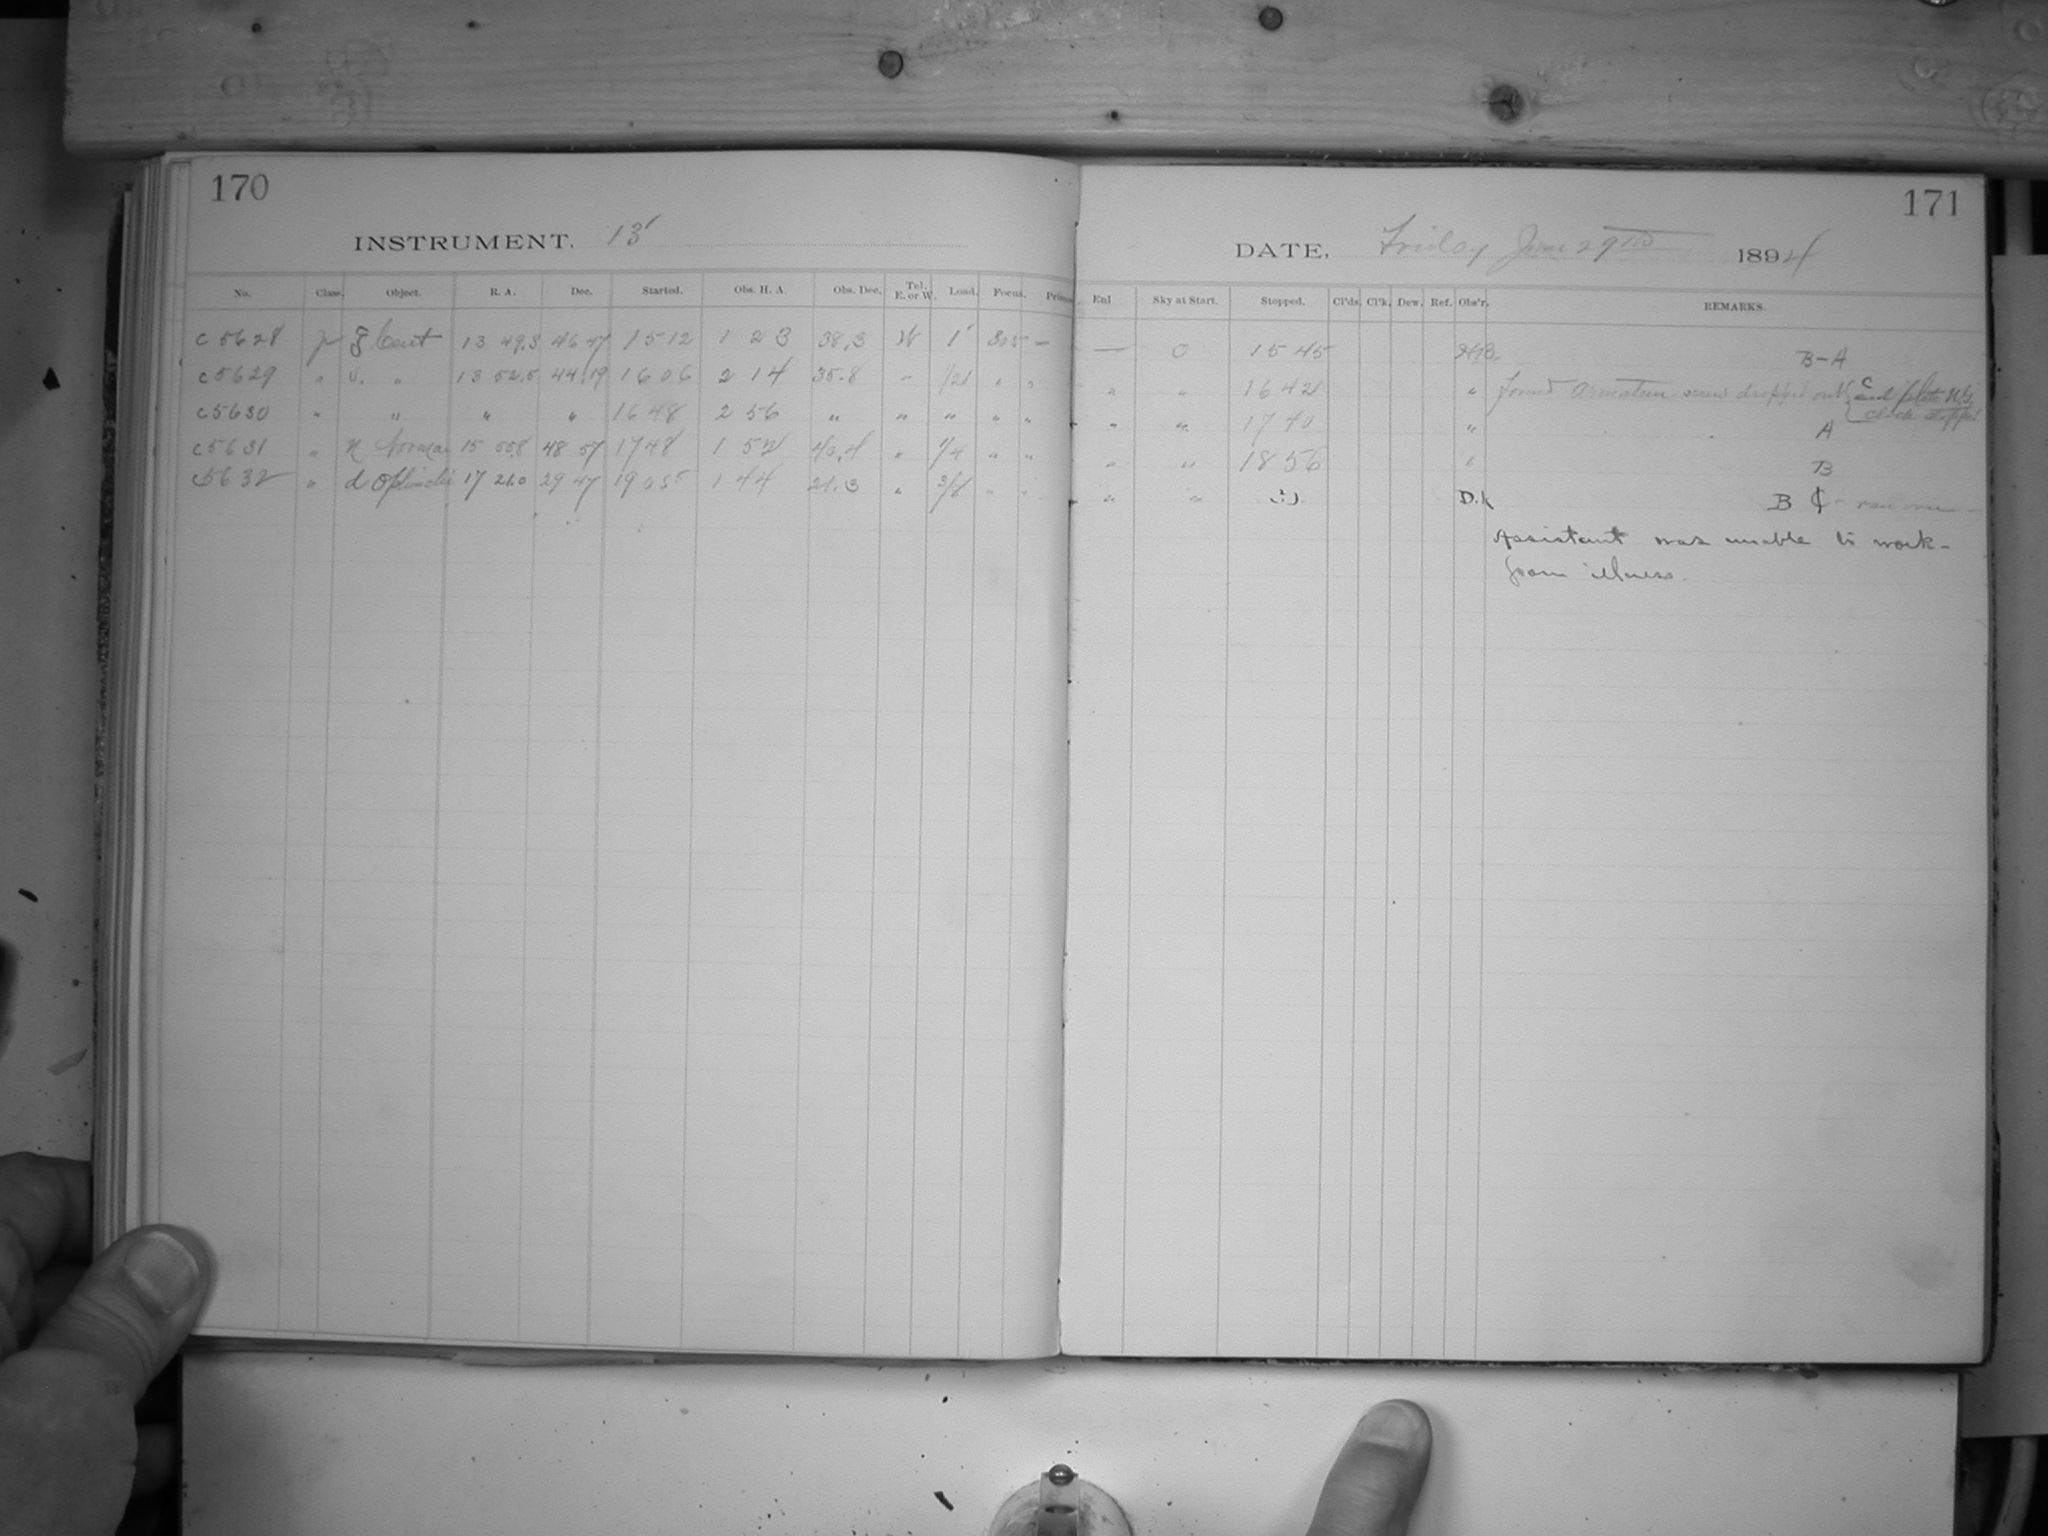 170
INSTRUMENT. 13"
No. Class. Object. R. A. Dec. Started. Obs. H. A. Obs. Dec. Tel. E. or W. Load. Focus.
c 5628 g Cent 13 49.3 46 47 15 12 1 23 38.3 W 1" 305 —
c 5629 " " 13 52.5 44.19 16 06 2 14 35.8 " " "
c 5630 " " " " 16 48 2 56 " " " " "
c 5631 " N Normae 15 55.8 48 57 17 48 1 52 40.4 " 1/4 " "
c 5632 " d Ophiuchi 17 21.0 29 47 19 05 1 44 21.3 " " "
171
DATE, Friday June 29th 1894
Enl Sky at Start. Stopped. Cl'ds. Cl'k. Dew. Ref. Obs'r. REMARKS.
— 0 15 45 B-A
" " 16 42 " found armature screw dropped out C and plate N.G.
clock stopped
" " 17 40 " A
" " 18 56 " B
" " B
Assistant was unable to work-
from illness.